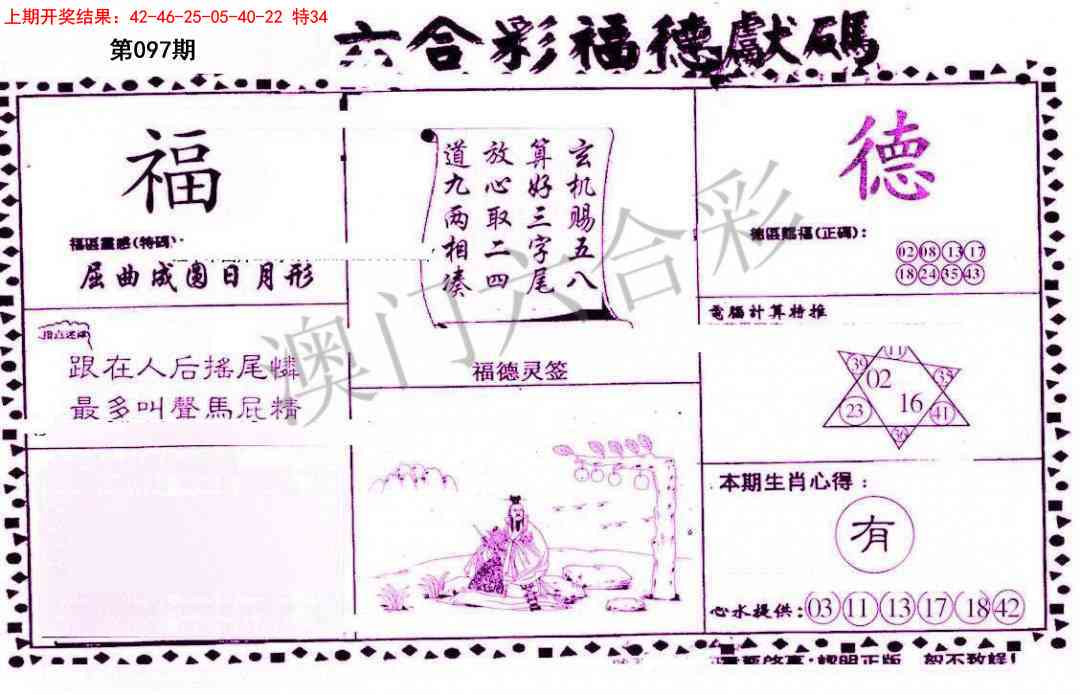 上期开奖结果：42-46-25-05-40-22 特34
第097期
六合彩福德獻碼
福
福區靈感(特碼):
屈曲成圓日月形
跟在人后搖尾憐
最多叫聲馬屁精
玄机賜五八
算好三字尾
放心取二四
道九两相湊
福德灵签
德
德區賜福(正碼):
02 08 13 17
18 24 35 43
電腦計算特推
11
39 02 35
23 16 41
36
本期生肖心得:
有
心水提供:03 11 13 17 18 42
澳门六合彩